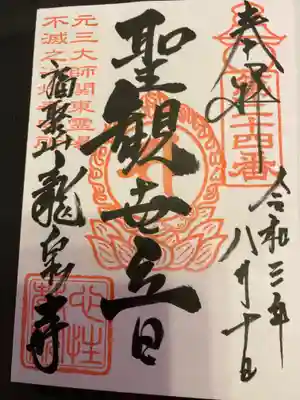 奉拝
十四番
令和三年
八月十日
聖観世音
元三大師関東霊
不滅之
福聚山龍泉寺